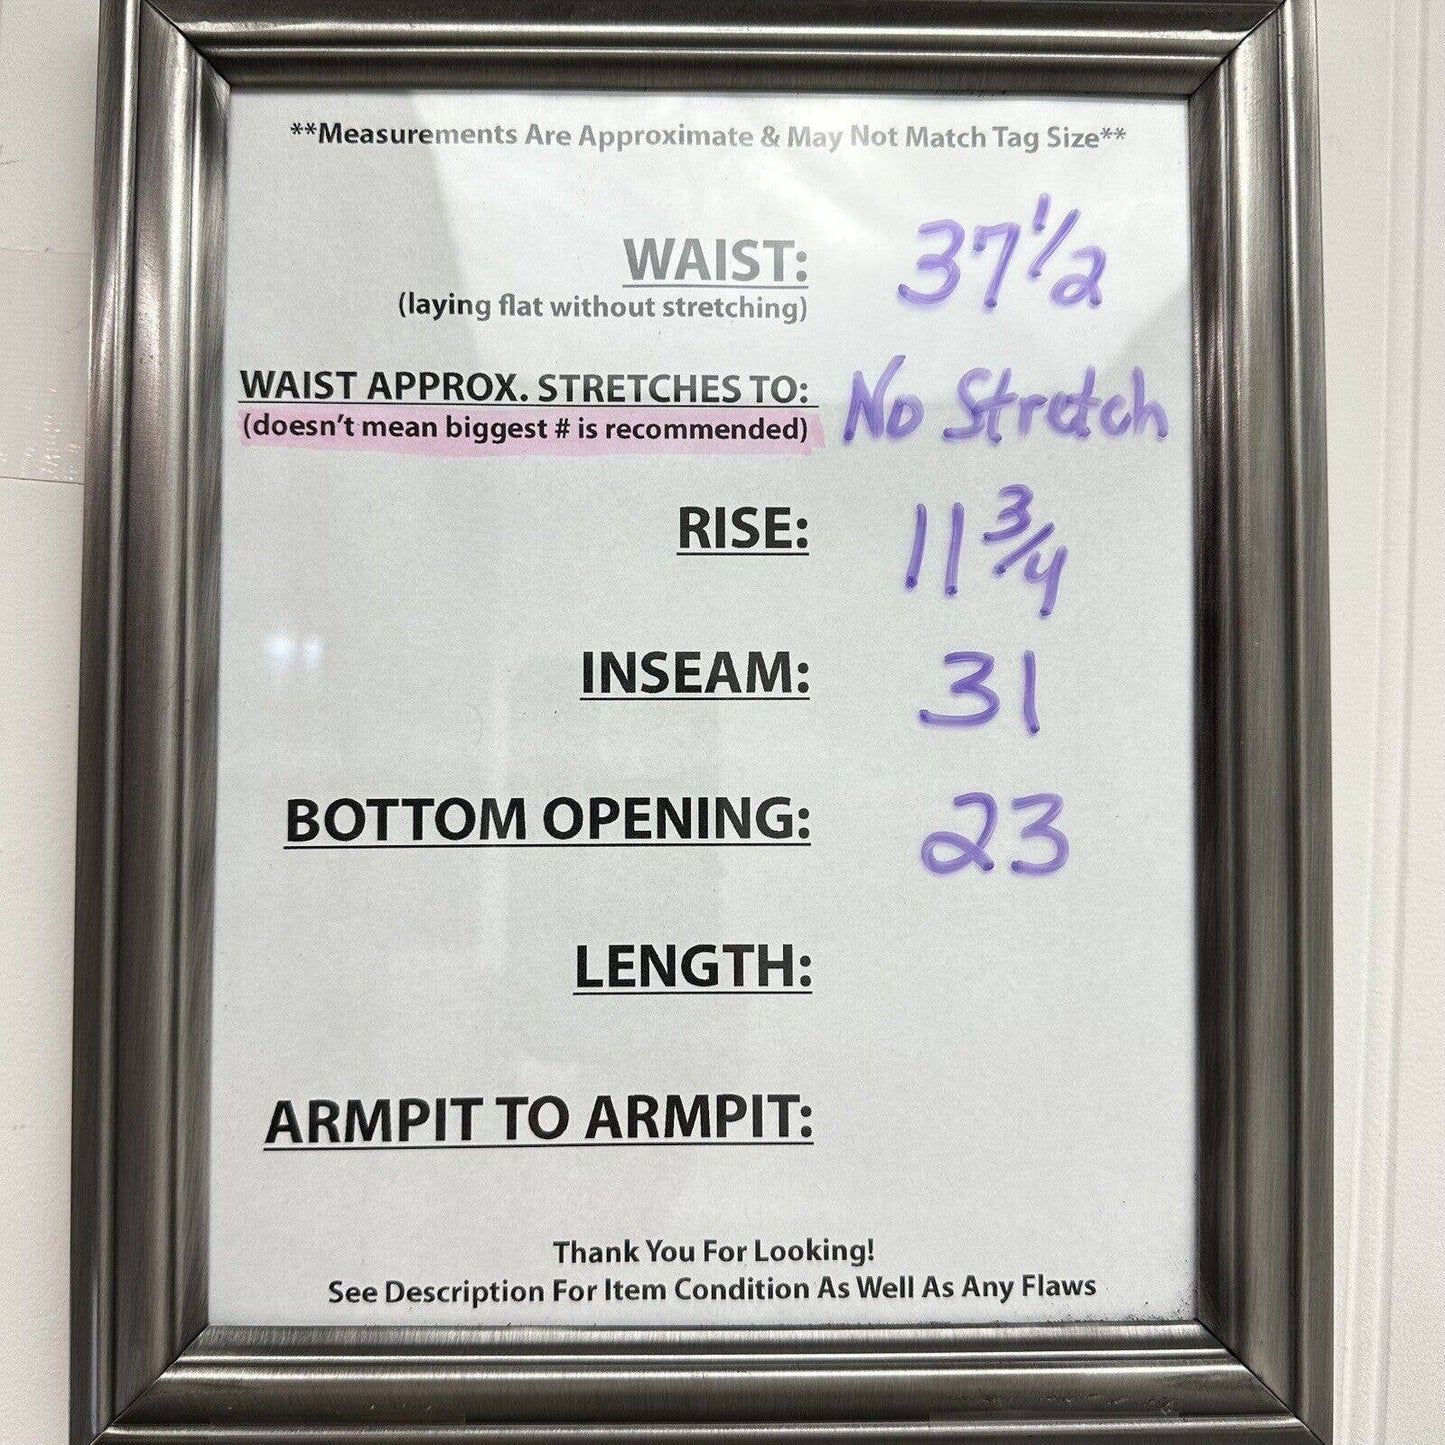 **Measurements Are Approximate & May Not Match Tag Size**
WAIST: 37 1/2
(laying flat without stretching)
WAIST APPROX. STRETCHES TO: No Stretch
(doesn't mean biggest # is recommended)
RISE: 11 3/4
INSEAM: 31
BOTTOM OPENING: 23
LENGTH:
ARMPIT TO ARMPIT:
Thank You For Looking!
See Description For Item Condition As Well As Any Flaws